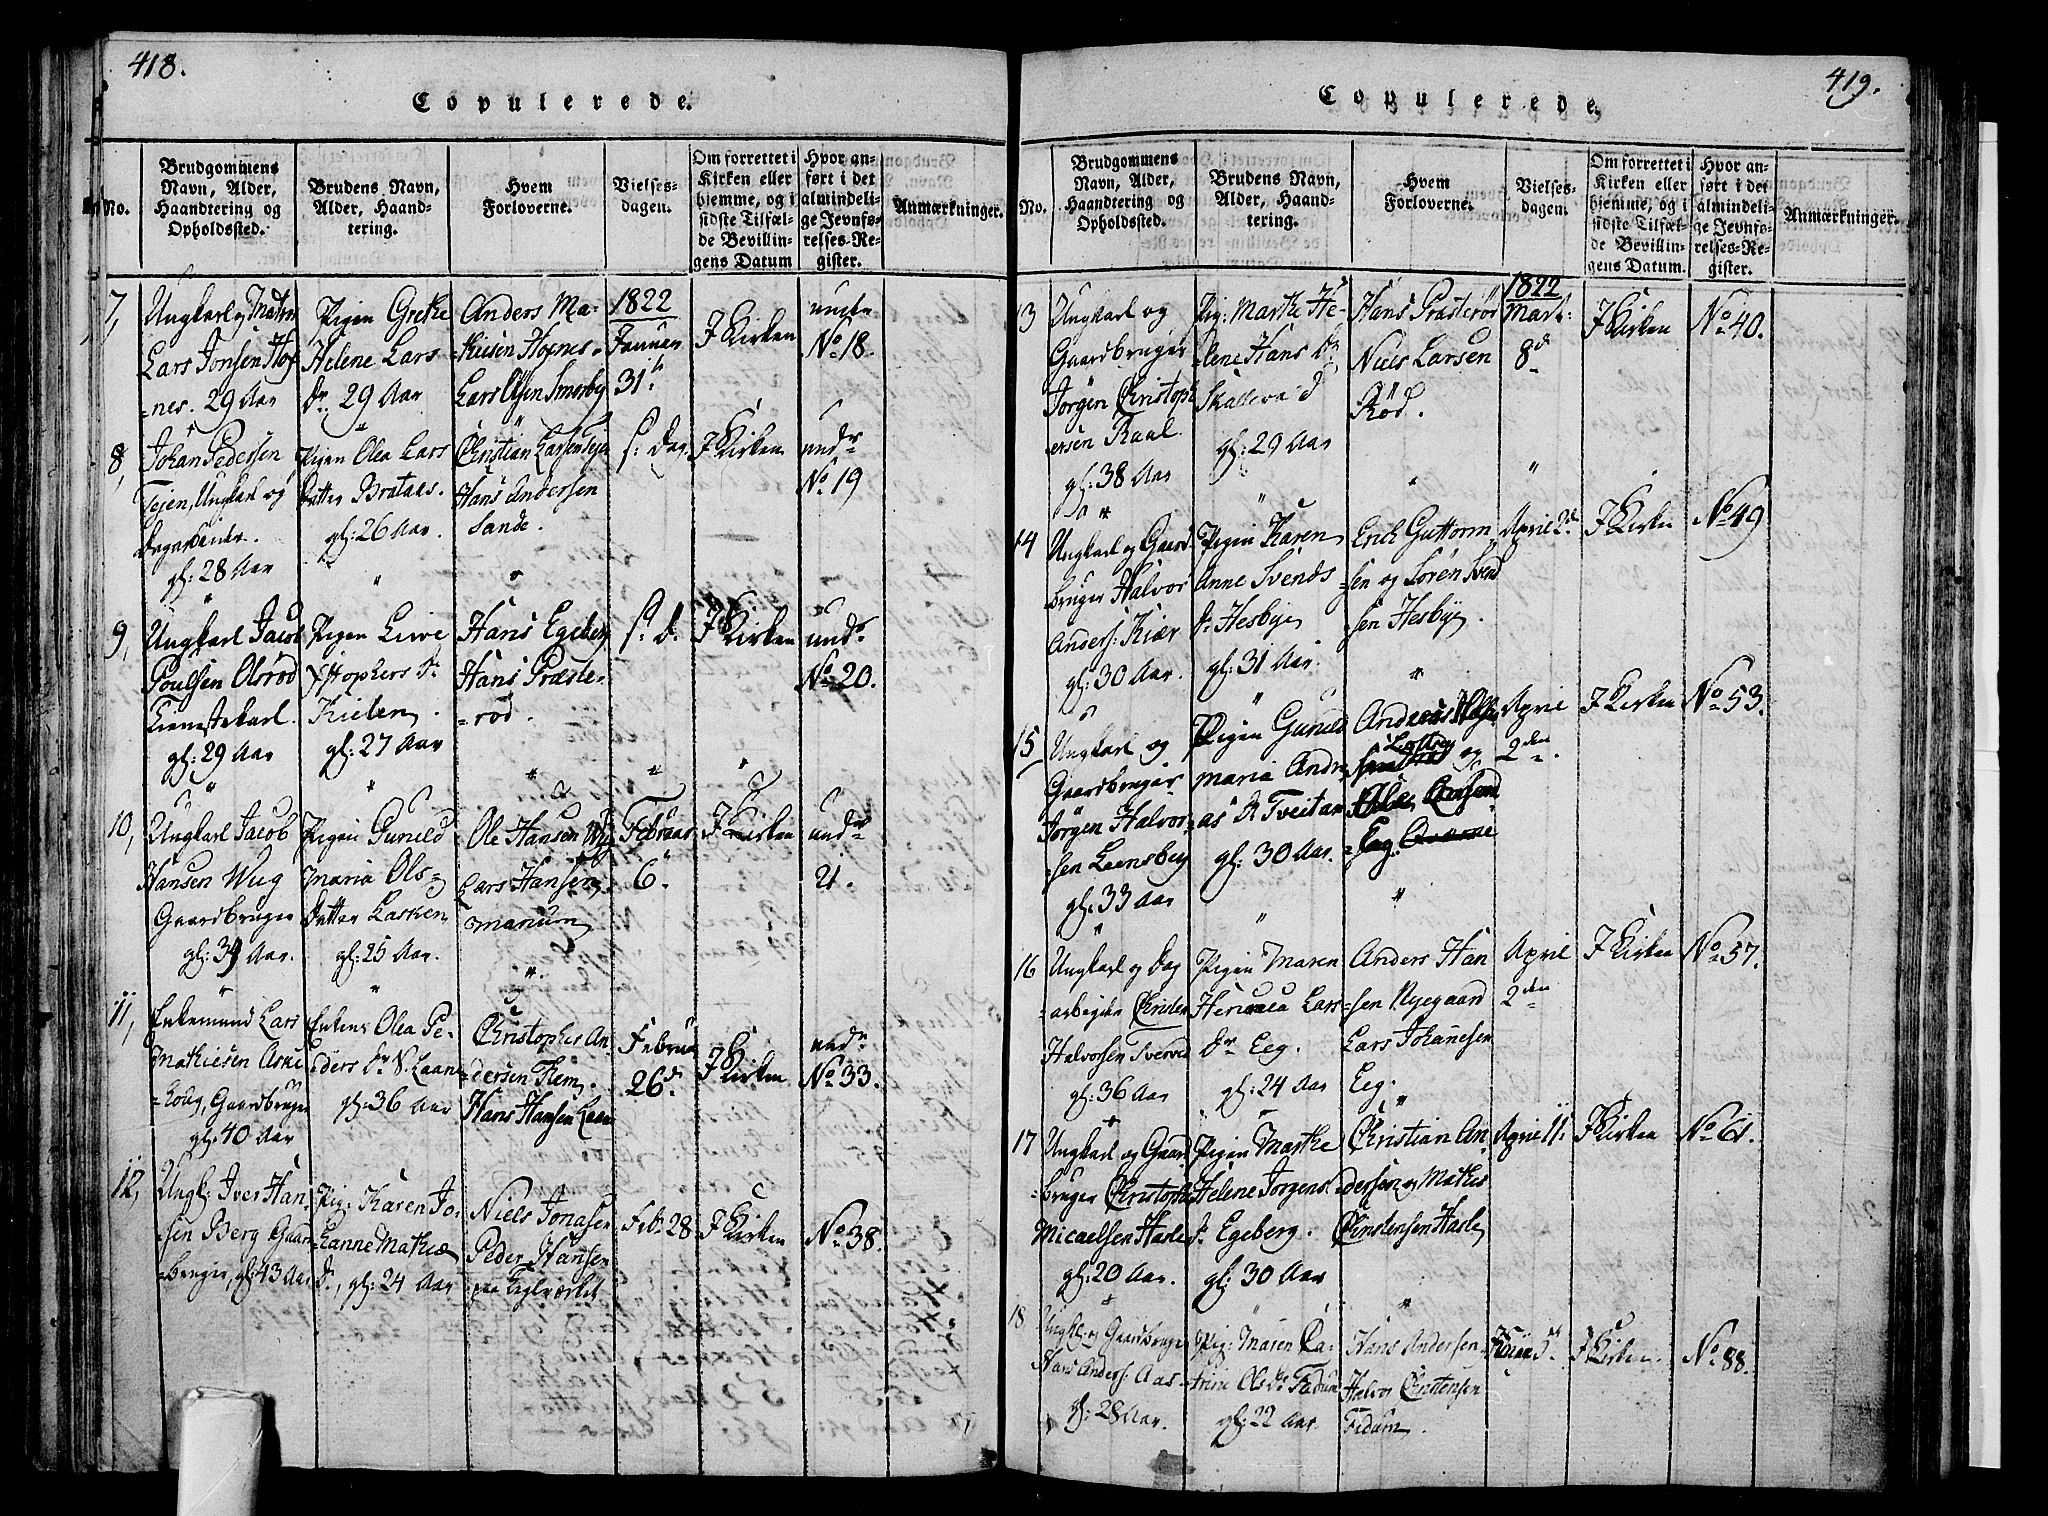 418.
Copulerede.
No.
Brudgommens
Navn, Alder,
Haandtering og
Opholdssted.
Brudens Navn,
Alder, Haand-
tering.
Hvem
Forloverne.
Vielses-
dagen.
Om forrettet i
Kirken eller
hjemme, og i
sidste Tilfæl-
de Bevillin-
gens Datum
Hvor an-
ført i det
almindeli-
ge Jevnfø-
relses-Re-
gister.
Anmærkninger.
7,
Ungkarl og Matros
Lars Jonsen Hox
=nes. 29 Aar
Pigen Grethe
Helene Lars
Dr. 29 Aar
Anders Ma-
Hoxnes.
Lars Olsen Smørberg
1822
Januar
31
I Kirken
under
No 18.
8,
Johan Pedersen
Tejen, Ungkarl og
gl: 28 Aar
Pigen Olea Lars
Datter Brataas.
gl: 26 Aar.
Christian Larsen Tejen
Hans Andersen
Sande.
s: Dag.
I Kirken
undr
No 19
9,
Ungkarl Jacob
Poulsen Olsrød
Tienestekarl.
gl: 29 Aar
Pigen Live
Kielen.
gl: 27 Aar
Hans Egeberg
Hans Præste-
=rød.
s: D.
I Kirken
undr
No 20.
10,
Ungkarl Jacob
Hansen Wug
Gaardbruger
gl: 39 Aar.
Pigen Gunild
Maria Ols-
Datter Lasken
gl: 25 Aar.
Ole Hansen Wug
Lars Hansen
Manum
Februar
6.
I Kirken
undr
21.
11,
Enkemand Lars
Mathiesen Aske
=houg, Gaardbruger
gl: 40 Aar
Enken Olea Pe-
ders Dr N. Laane
gl: 36 Aar
Christopher An
=dersen Flem.
Hans Hansen Laane
Februar
26d.
I Kirken
undr
No 33.
12,
Ungk: Iver Han-
=sen Berg Gaar
=bruger, gl: 43 Aar
Pig: Karen Jo-
=hanne Mathis
D., gl: 24 Aar
Niels Jonasen
Peder Hansen
paa Teglværket
Febr 28
I Kirken
No 38.
419.
Copulerede.
No.
Brudgommens
Navn, Alder,
Haandtering og
Opholdssted.
Brudens Navn,
Alder, Haand-
tering.
Hvem
Forloverne.
Vielses-
dagen.
Om forrettet i
Kirken eller
hjemme, og i
sidste Tilfæl-
de Bevillin-
gens Datum.
Hvor an-
ført i det
almindeli-
ge Jevnfø-
relses-Re-
gister.
Anmærkninger.
13
Ungkarl og
Gaardbruger
Jörgen Christoph
ersen Raal.
gl: 38 Aar
Pig: Marthe He-
=lene Hans Dr
Skallevald
gl: 29 Aar
Hans Præsterød
Niels Larsen
Röd.
1822
Marts
8d
I Kirken
No 40.
14
Ungkarl og Gaard
bruger Halvor
Anders: Kiær
gl: 30 Aar.
Pigen Karen
Anne Svends
Dr Hesbye
gl: 31 Aar.
Erich Guttorm
=sen og Sören Svend
sen Hesbye.
April 2d.
I Kirken
No 49
15
Ungkarl og
Gaardbruger
Jörgen Halvor
=sen Leensberg
gl: 33 Aar
Pigen Gunild
Maria Andre
as Dr Tveitan
gl: 30 Aar.
Andreas
og
Eeg.
April
2den.
I Kirken
No 53.
16
Ungkarl og Dag
=arbeider Christen
Halvorsen
gl: 36 Aar
Pigen Maren
Lars
Dr Eeg.
gl: 24 Aar
Anders Han
=sen Nyegaard
Lars Johannesen
Eeg.
April
2den
I Kirken
No 57.
17
Ungkarl og Gaard
=bruger Christopher
Micaelsen Hasle
gl: 20 Aar.
Pigen Marthe
Helene Jorgens
Dr Egeberg.
gl: 30 Aar
Christian An
dersen og Mathis
Christensen Hasle
April 11.
I Kirken
No 61.
18
Ungkl og Gaardbruger
Hans Anders: Aas
gl: 28 Aar.
Pig: Maren Ca-
trine Ols Dr Fadum
gl: 22 Aar.
Hans Andersen
Halvor Christensen
Fadum.
I Kirken.
No 88.